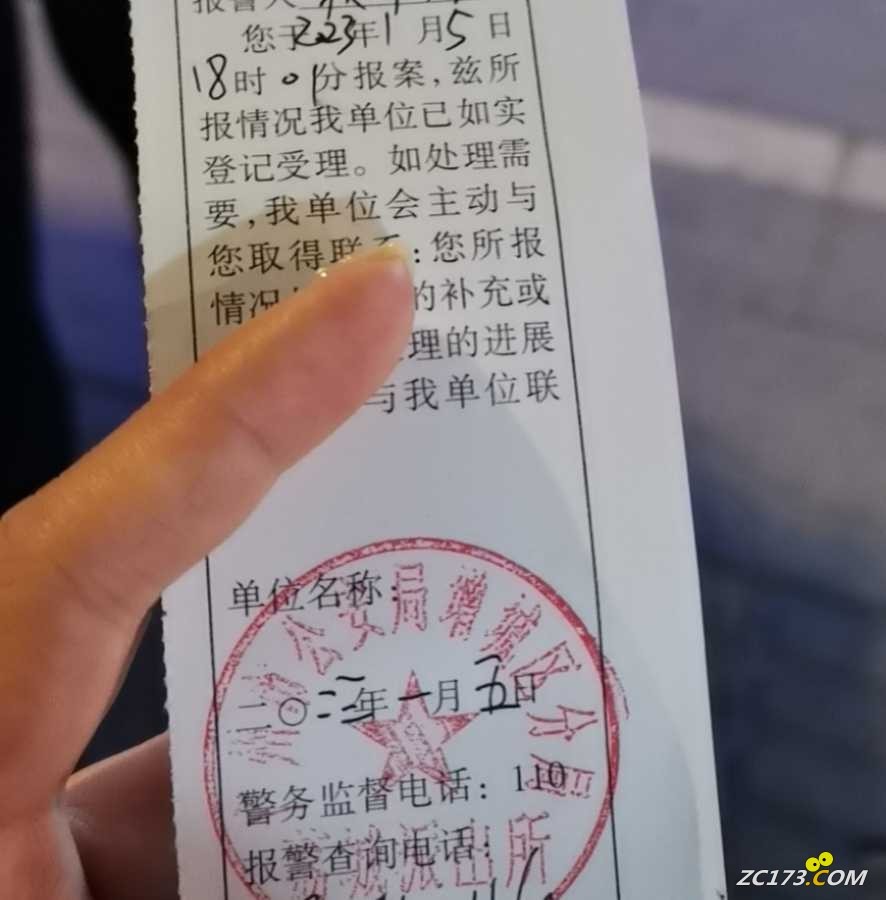 报警人
您于2023年1月5日
18时01分报案,兹所
报情况我单位已如实
登记受理。如处理需
要,我单位会主动与
您取得联系:您所报
情况 的补充或
理的进展
与我单位联
单位名称:
公安局增城区分局
二〇二三年一月五日
警务监督电话:110
报警查询电话:
派出所
ZC173.COM